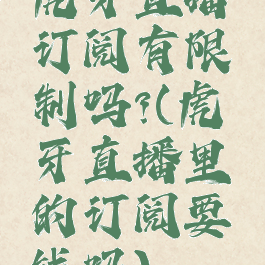 虎牙直播
订阅有限
制吗?(虎
牙直播里
的订阅要
钱吗)